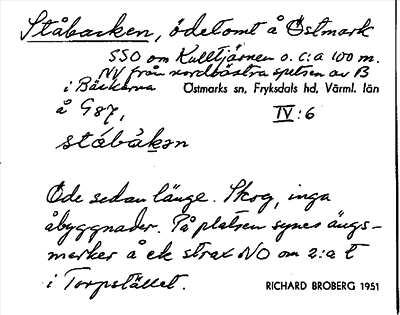 Ståbacken, ödetomt å Östmark
SSO om Kulltjärnen o. c:a 100 m.
NV från nordvästra spetsen av B
i Bäckarna Östmarks sn, Fryksdals hd, Värml. län
å 987, IV:6
stábàkən
Öde sedan länge. Skog, inga
åbyggnader. På platsen synes ängs-
marker å ek strax NO om 2:a t
i Torpstället.
RICHARD BROBERG 1951